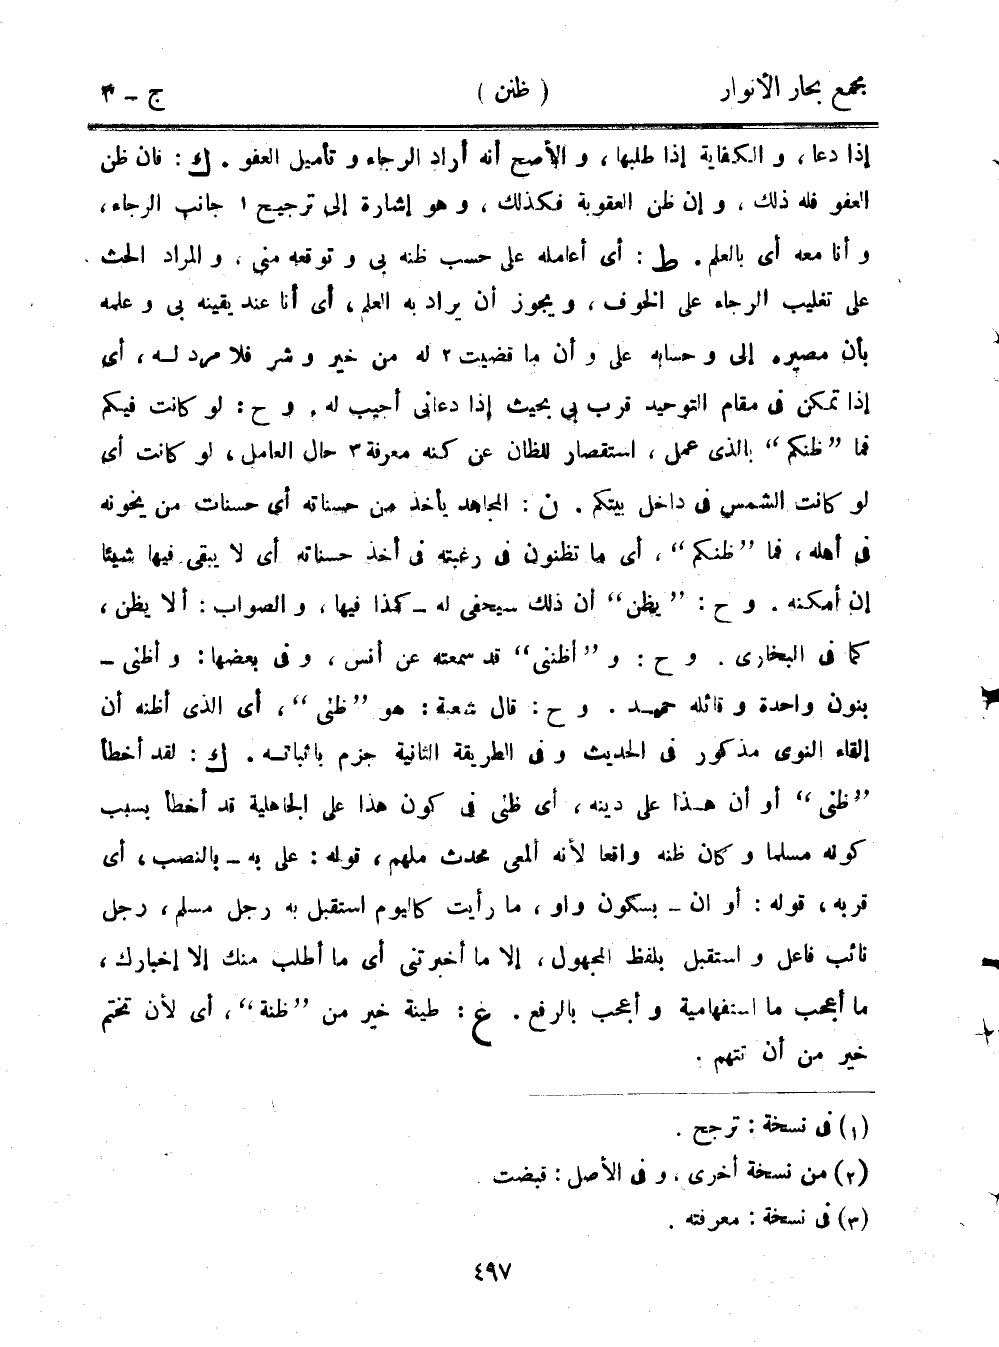 مجمع بحار الأنوار ( ظنن ) ج - ٣
إذا دعا، و الكفاية إذا طلبها، و الأصح أنه أراد الرجاء و تأميل العفو . ك : فان ظن
العفو فله ذلك ، و إن ظن العقوبة فكذلك ، و هو إشارة إلى ترجيح ١ جانب الرجاء ،
و أنا معه أى بالعلم . ط : أى أعامله على حسب ظنه بى و توقعه منى ، و المراد الحث
على تغليب الرجاء على الخوف ، و يجوز أن يراد به العلم ، أى أنا عند يقينه بى و علمه
بأن مصيره إلى و حسابه على و أن ما قضيت ٢ له من خير و شر فلا مرد لـه ، أى
إذا تمكن فى مقام التوحيد قرب بى بحيث إذا دعانى أجيب له . و ح : لو كانت فيكم
فما ”ظنكم“ بالذى عمل ، استقصار للظان عن كنه معرفة ٣ حال العامل ، لو كانت أى
لو كانت الشمس فى داخل بيتكم . ن : المجاهد يأخذ من حسناته أى حسنات من يخونه
فى أهله ، فما ”ظنكم“ ، أى ما تظنون فى رغبته فى أخذ حسناته أى لا يبقى فيها شيئا
إن أمكنه . و ح : ”يظن“ أن ذلك سيحفى له - كمذا فيها ، و الصواب : ألا يظن ،
كما فى البخارى . و ح : و ”أظننى“ قد سمعته عن أنس ، و فى بعضها : و أظنى -
بنون واحدة و قائله حميـد . و ح : قال شعبة : هو ”ظنى“ ، أى الذى أظنه أن
إلقاء النوى مذكور فى الحديث و فى الطريقة الثانية جزم باثباتـه . ك : لقد أخطأ
”ظنى“ أو أن هـذا على دينه ، أى ظنى فى كون هذا على الجاهلية قد أخطأ بسبب
كونه مسلما و كان ظنه واقعا لأنه ألمعى محدث ملهم ، قوله : على به - بالنصب ، أى
قربه ، قوله : أو ان - بسكون واو ، ما رأيت كاليوم استقبل به رجل مسلم ، رجل
نائب فاعل و استقبل بلفظ المجهول ، إلا ما أخبرتنى أى ما أطلب منك إلا إخبارك ،
ما أعجب ما استفهامية و أعجب بالرفع . غ : طينة خير من ”ظنة“ ، أى لأن تختم
خير من أن تتهم .
(١) فى نسخة : ترجح .
(٢) من نسخة أخرى ، و فى الأصل : قبضت .
(٣) فى نسخة : معرفته .
٤٩٧